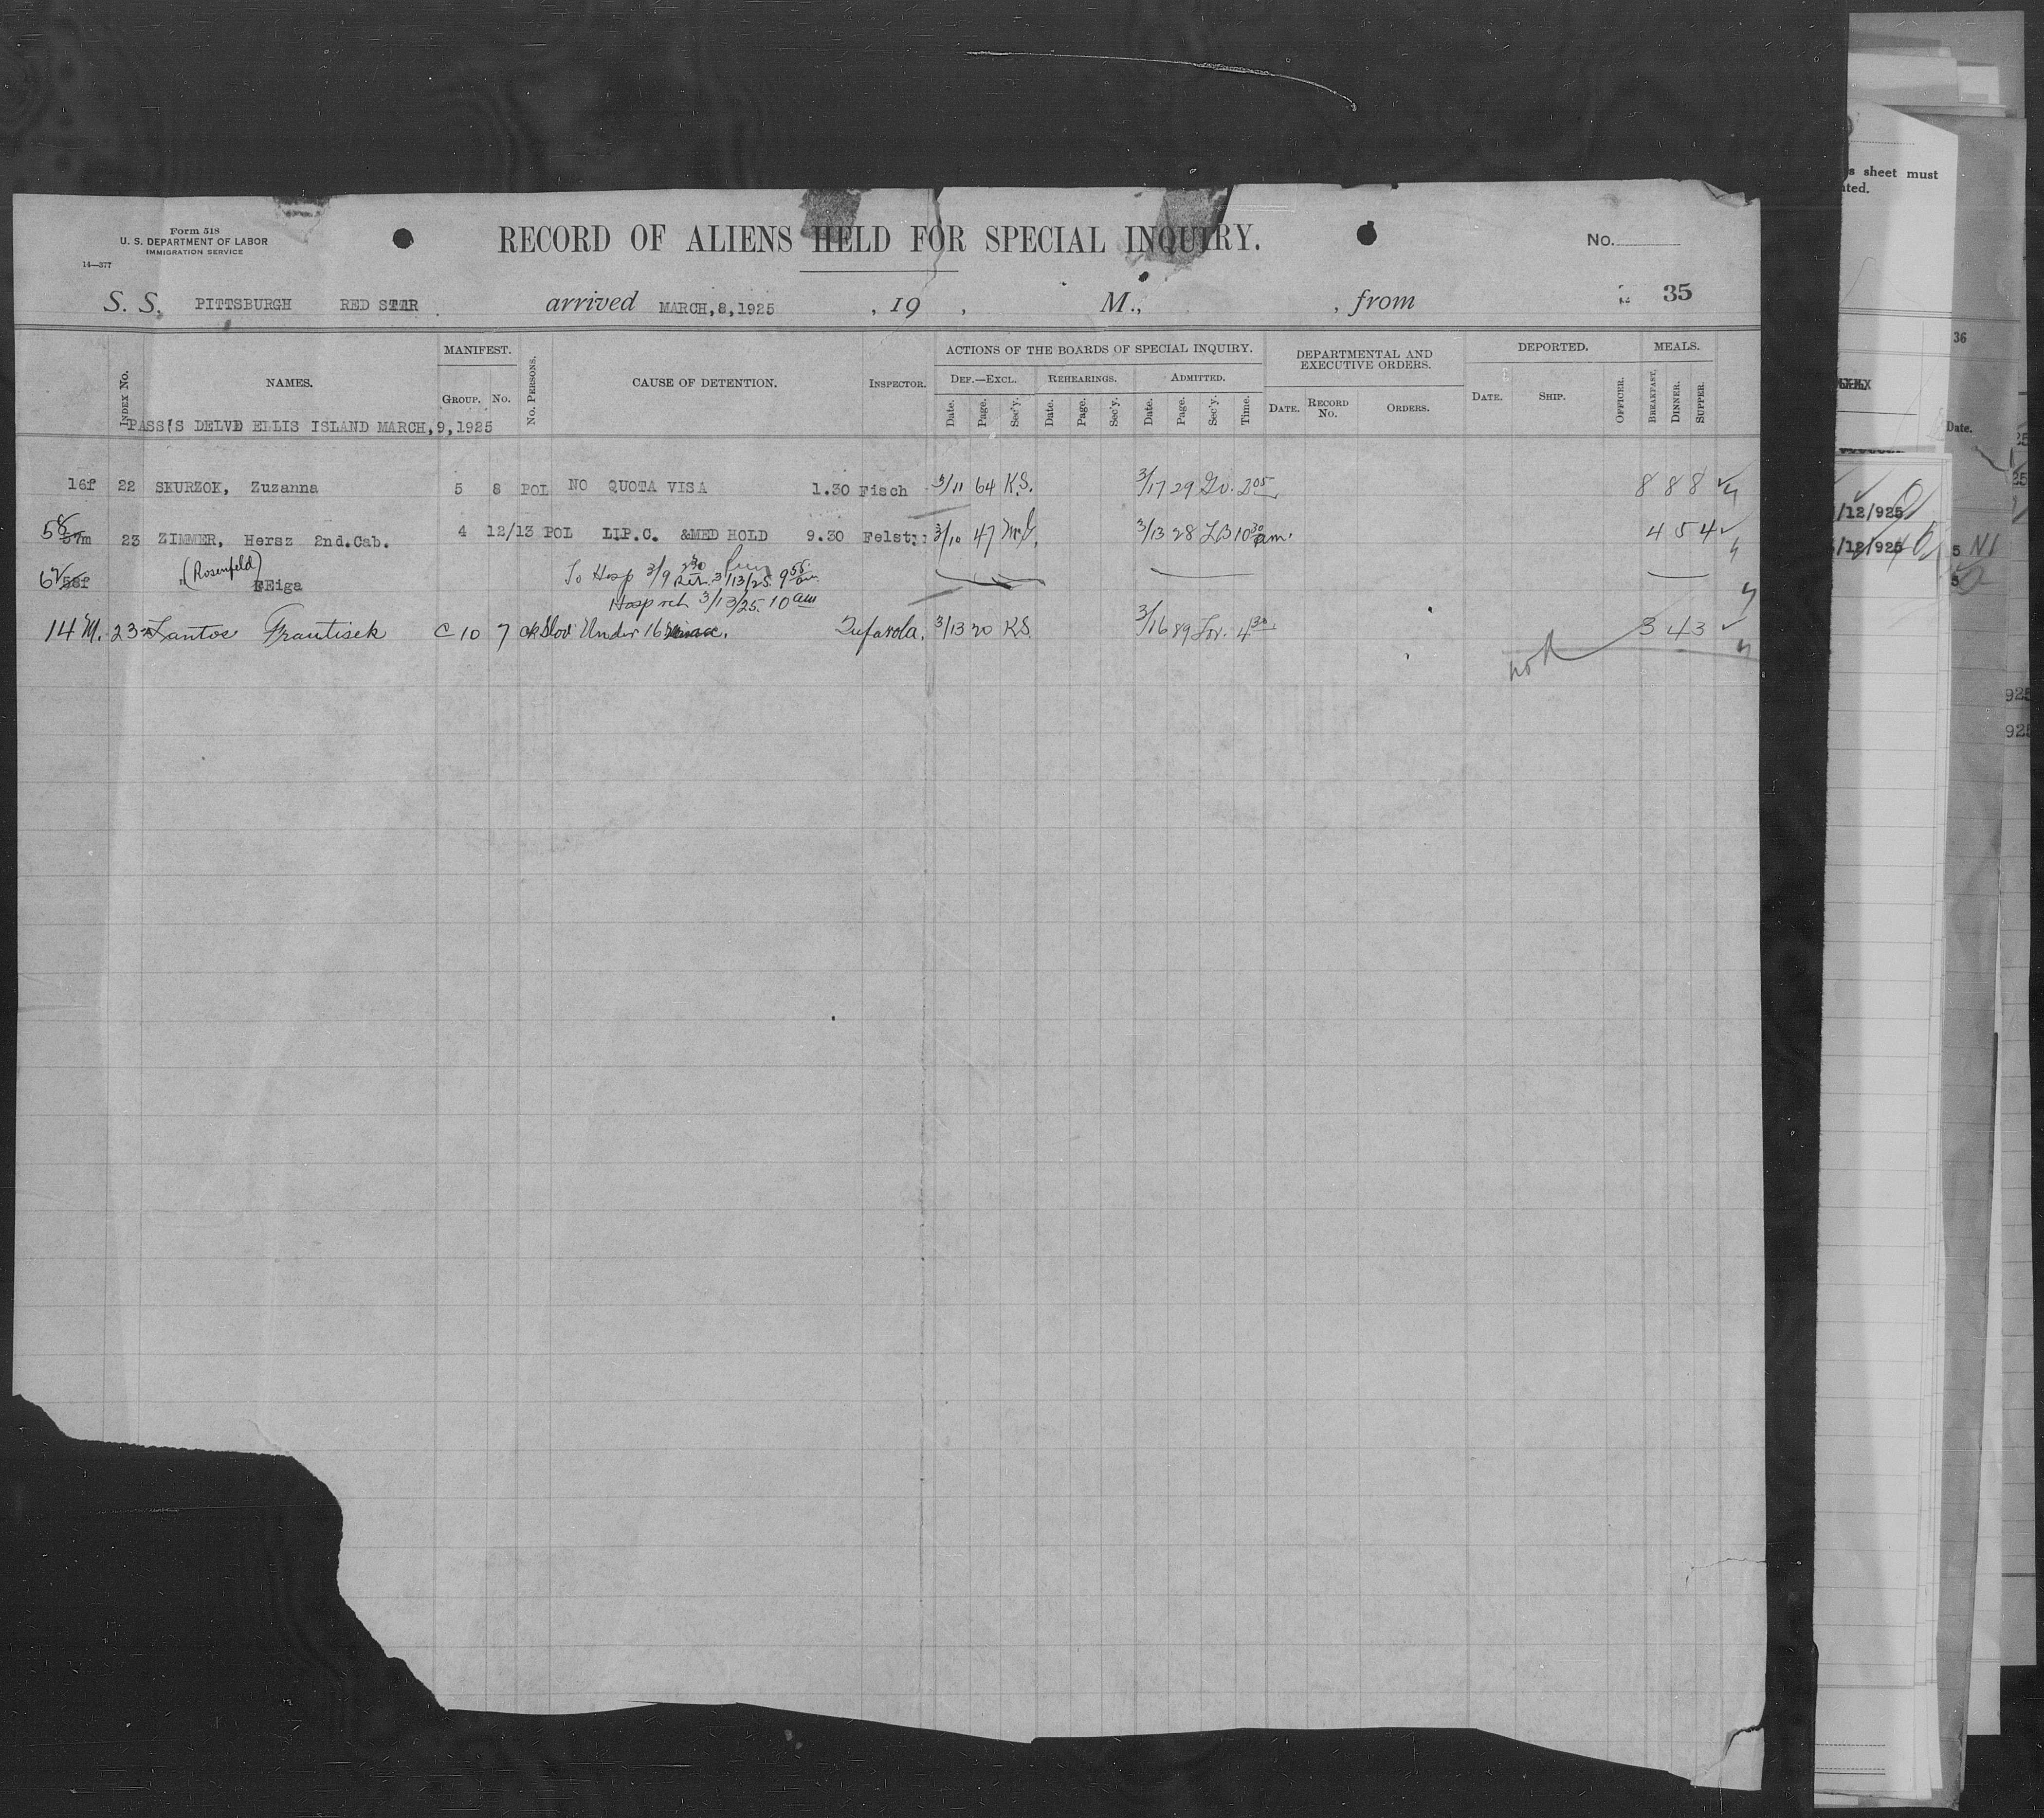 Form 518
U. S. DEPARTMENT OF LABOR
IMMIGRATION SERVICE
14—377
RECORD OF ALIENS HELD FOR SPECIAL INQUIRY.
No.
S. S. PITTSBURGH RED STAR arrived MARCH,8,1925 , 19 , M., , from 35
INDEX No. NAMES. MANIFEST. GROUP. No. No. PERSONS. CAUSE OF DETENTION. INSPECTOR. ACTIONS OF THE BOARDS OF SPECIAL INQUIRY. DEF.—EXCL. Date. Page. Sec'y. REHEARINGS. Date. Page. Sec'y. ADMITTED. Date. Page. Sec'y. Time. DEPARTMENTAL AND EXECUTIVE ORDERS. DATE. RECORD No. ORDERS. DEPORTED. DATE. SHIP. OFFICER. MEALS. BREAKFAST. DINNER. SUPPER.
PASS'S DELVD ELLIS ISLAND MARCH,9,1925
16f 22 SKURZOK, Zuzanna 5 8 POL NO QUOTA VISA 1.30 Fisch 3/11 64 K.S. 3/17 29 2 05 8 8 8
58 57m 23 ZIMMER, Hersz 2nd.Cab. 4 12/13 POL LIP.C. &MED HOLD 9.30 Felst 3/10 47 3/13 28 LB 10 30 am. 4 5 4
62 58f " (Rosenfeld) FEiga To Hosp 3/9 2 30 Ret. 3/13/25 9 55 am
Hosp ret 3/13/25. 10 am
14 M. 23a Lantos Frantisek C 10 7 Slov Under 16 Tufarola. 3/13 20 K.S. 3/16 89 4 30 3 4 3
s sheet must
ated.
36
Date.
/12/925
/12/925
5
5
25
25
925
925